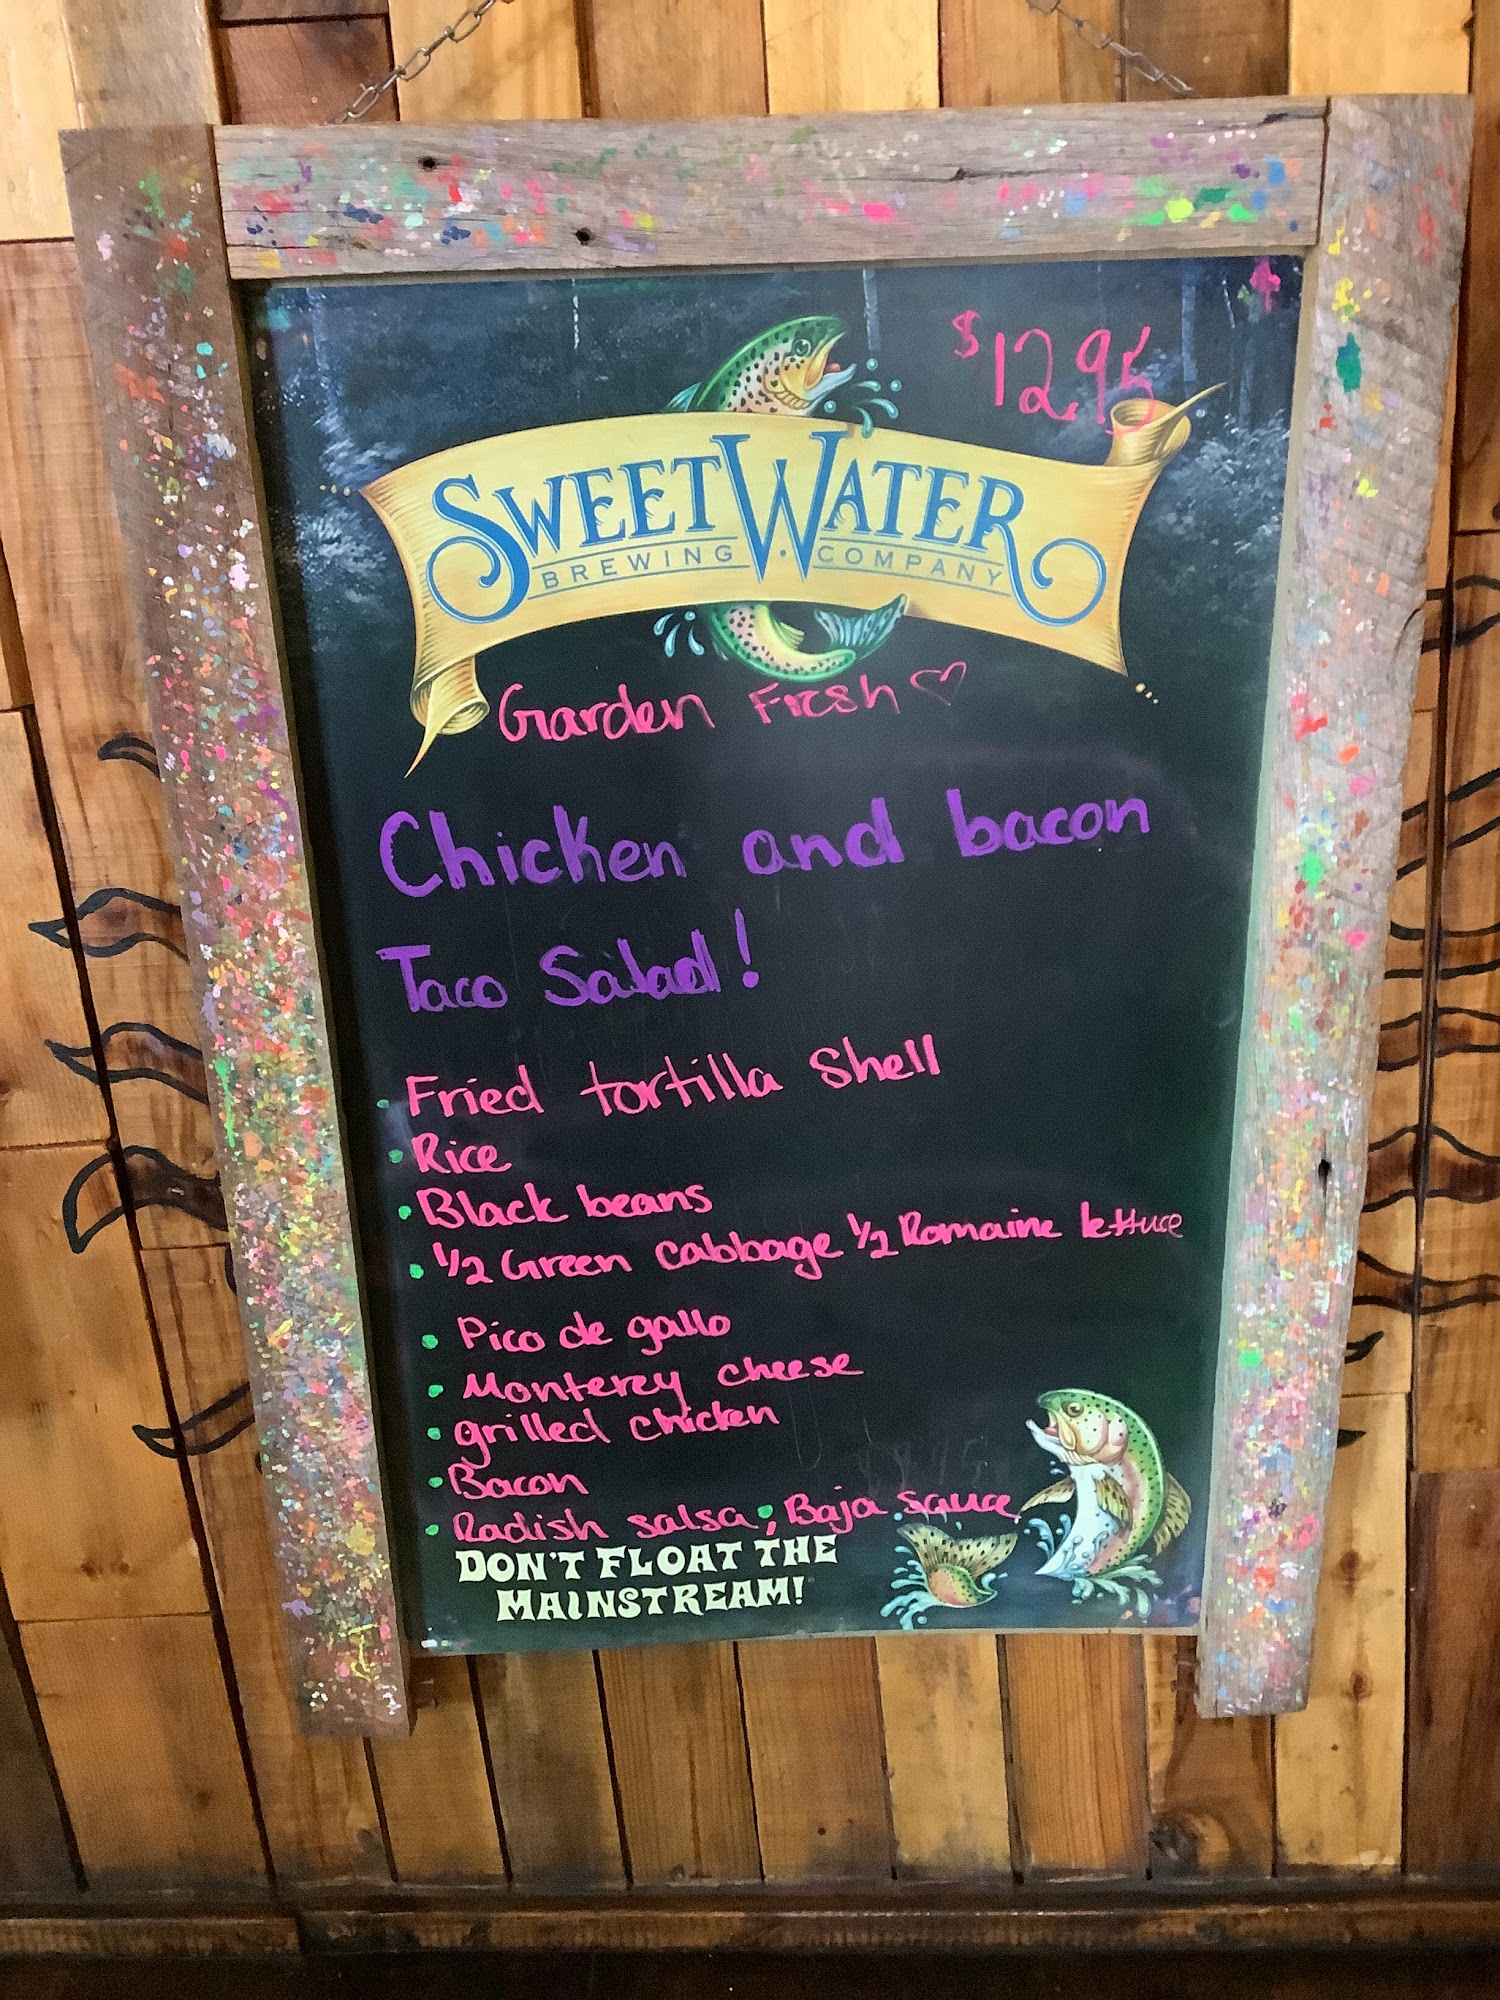 $12.95
SWEETWATER
BREWING · COMPANY
Garden Fresh ♡
Chicken and bacon
Taco Salad!
• Fried tortilla Shell
• Rice
• Black beans
• 1/2 Green Cabbage 1/2 Romaine lettuce
• Pico de gallo
• Monterey cheese
• grilled chicken
• Bacon
• Radish salsa; Baja sauce
DON'T FLOAT THE
MAINSTREAM!